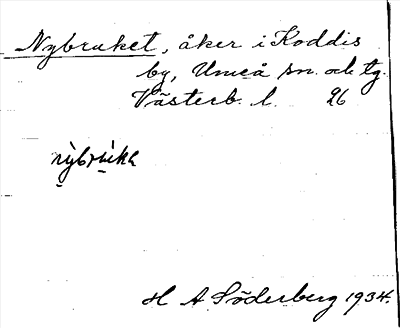 Nybruket, åker i Koddis
by, Umeå sn. och tg.
Västerb. l. 26
nỳbrùkh
H A Söderberg 1934.